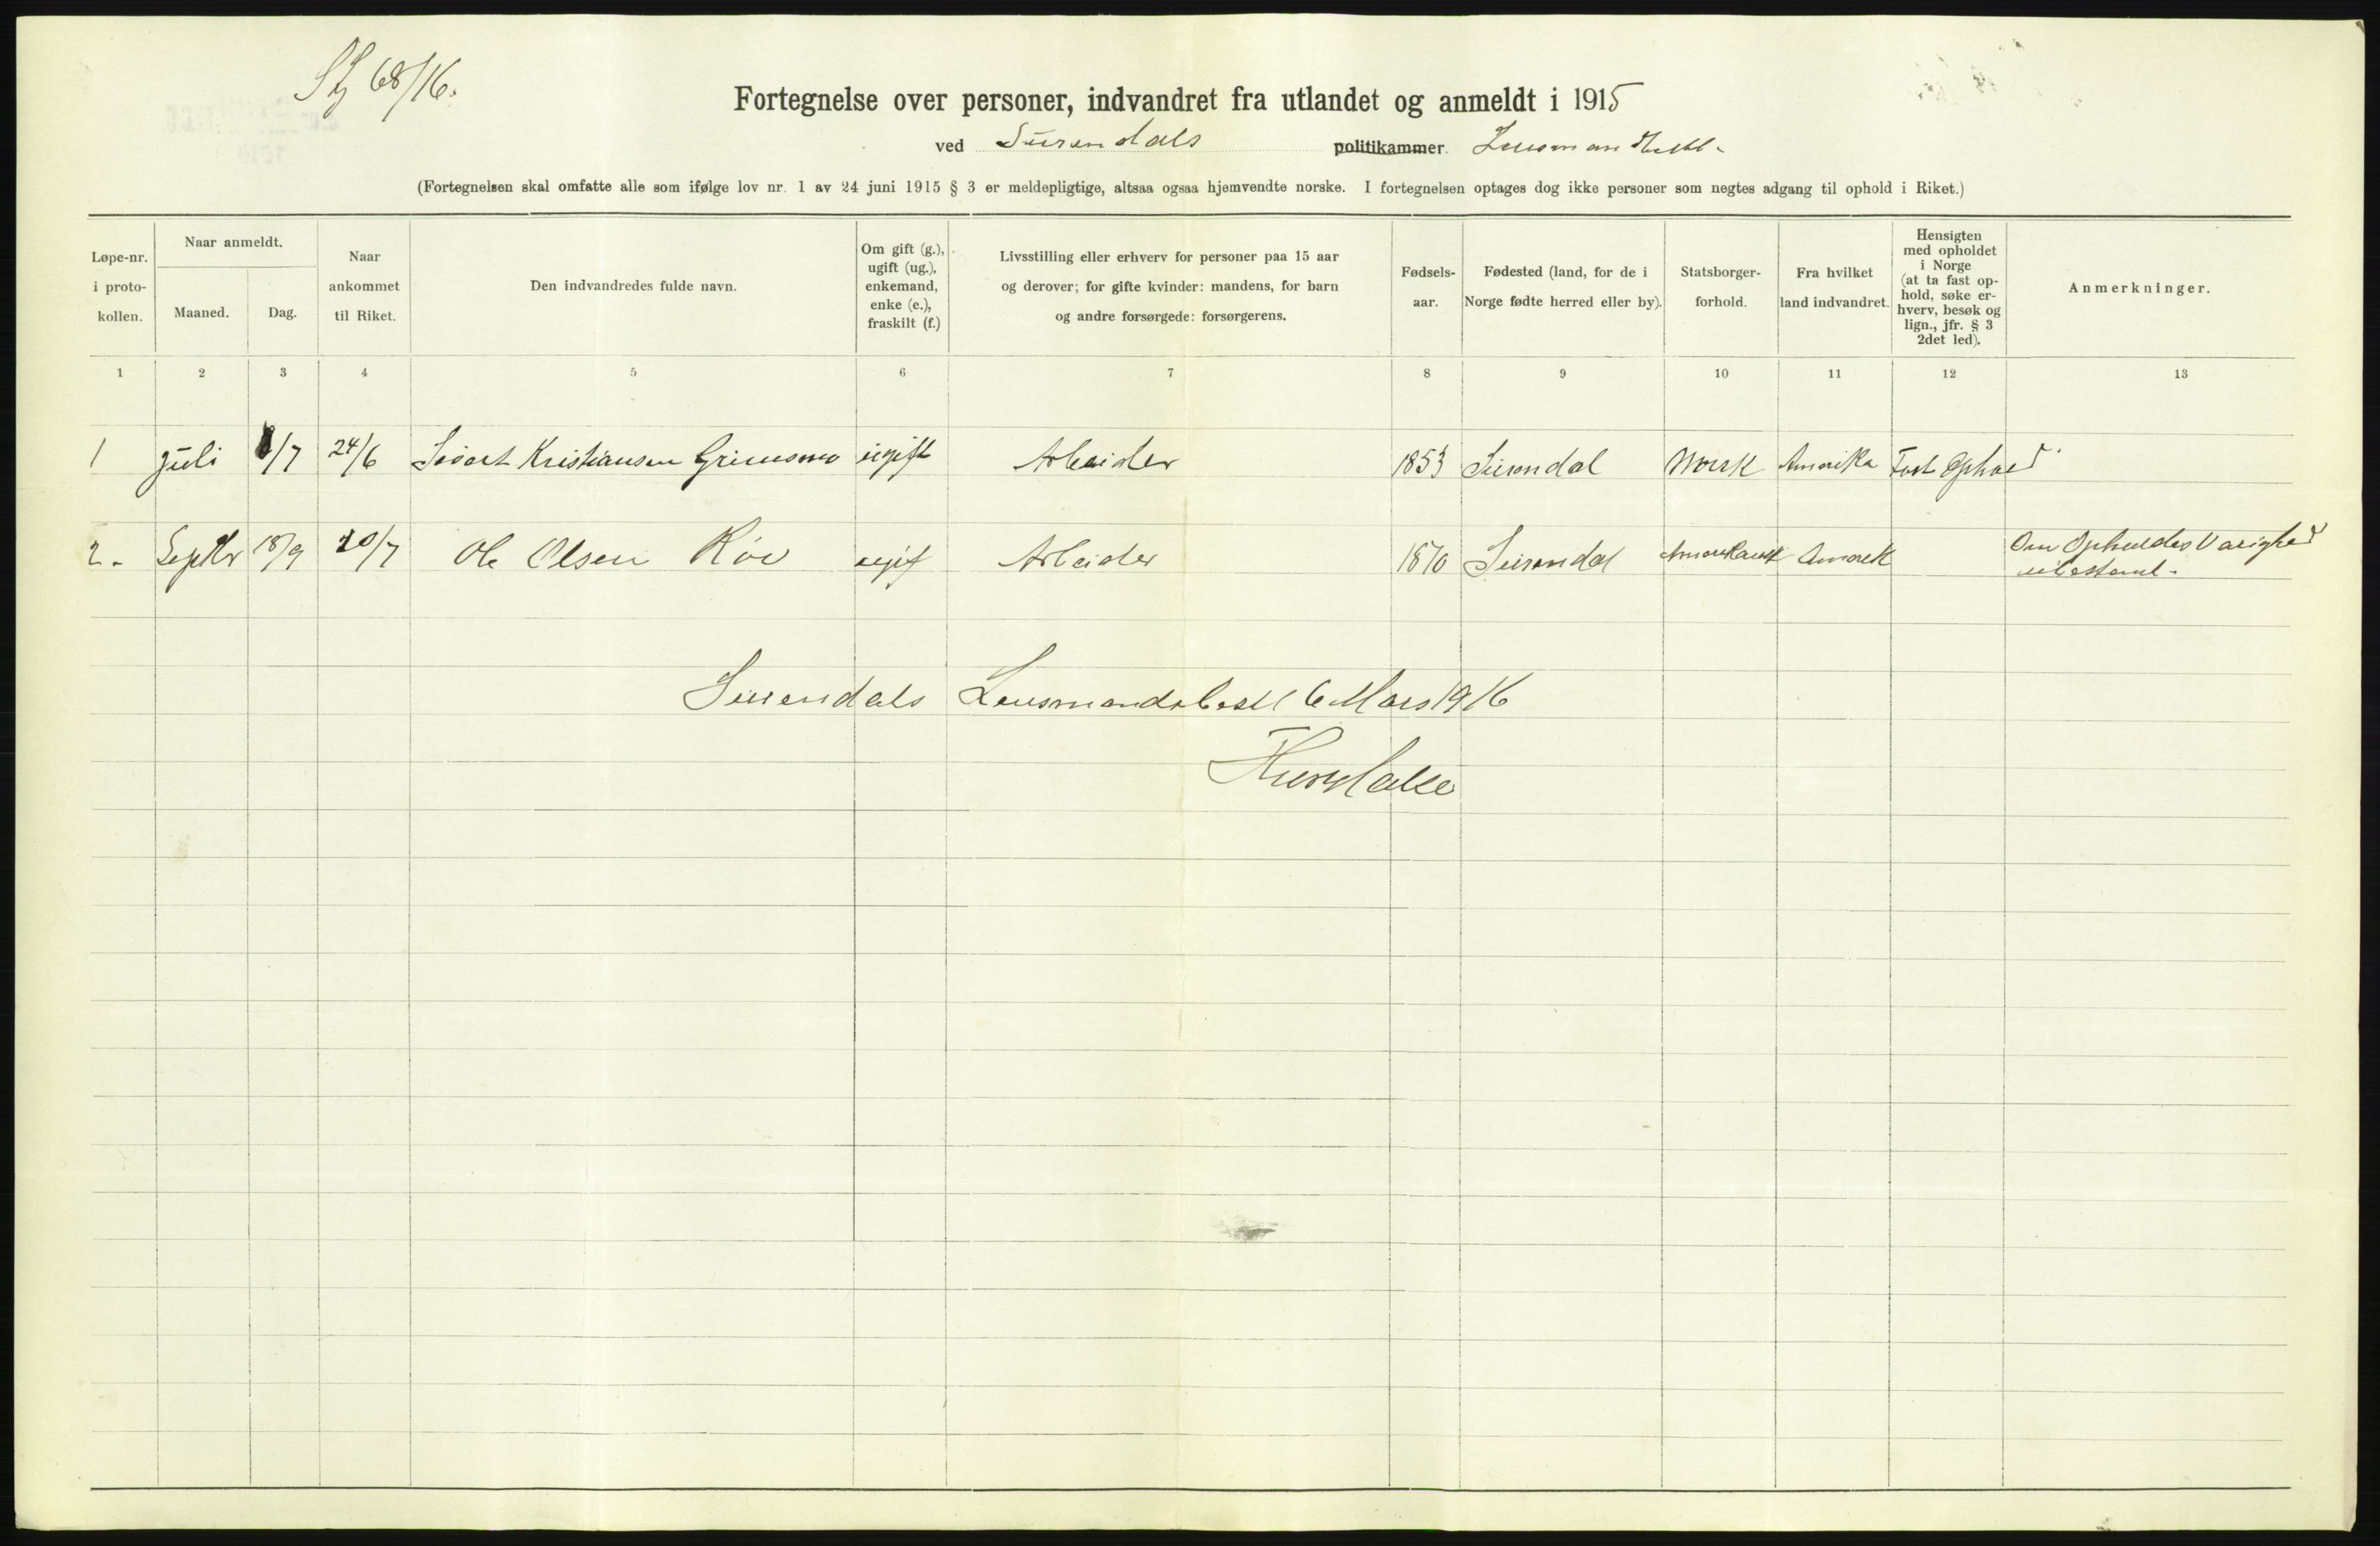 68/16.
Fortegnelse over personer, indvandret fra utlandet og anmeldt i 1915
ved Surendals politikammer.
(Fortegnelsen skal omfatte alle som ifølge lov nr. 1 av 24 juni 1915 § 3 er meldepligtige, altsaa ogsaa hjemvendte norske. I fortegnelsen optages dog ikke personer som negtes adgang til ophold i Riket.)
Løpe-nr. i proto-kollen.
Naar anmeldt.
Maaned.
Dag.
Naar ankommet til Riket.
Den indvandredes fulde navn.
Om gift (g.), ugift (ug.), enkemand, enke (e.), fraskilt (f.)
Livsstilling eller erhverv for personer paa 15 aar og derover; for gifte kvinder: mandens, for barn og andre forsørgede: forsørgerens.
Fødsels-aar.
Fødested (land, for de i Norge fødte herred eller by).
Statsborger-forhold.
Fra hvilket land indvandret.
Hensigten med opholdet i Norge (at ta fast op-hold, søke er-hverv, besøk og lign., jfr. § 3 2det led).
Anmerkninger.
1 2 3 4 5 6 7 8 9 10 11 12 13
1 Juli /7 24/6 Sivert Kristiansen Grimsmo ugift Arbeider 1853 Surendal Norsk Amerika Fast Ophold
2. Septbr 18/9 20/7 Ole Olsen Røv ugift Arbeider 1870 Surendal Amerikansk Amerik Om Opholdes Varighed
ubestemt.
Surendals Lensmandsbest 6 Mars 1916
Halse